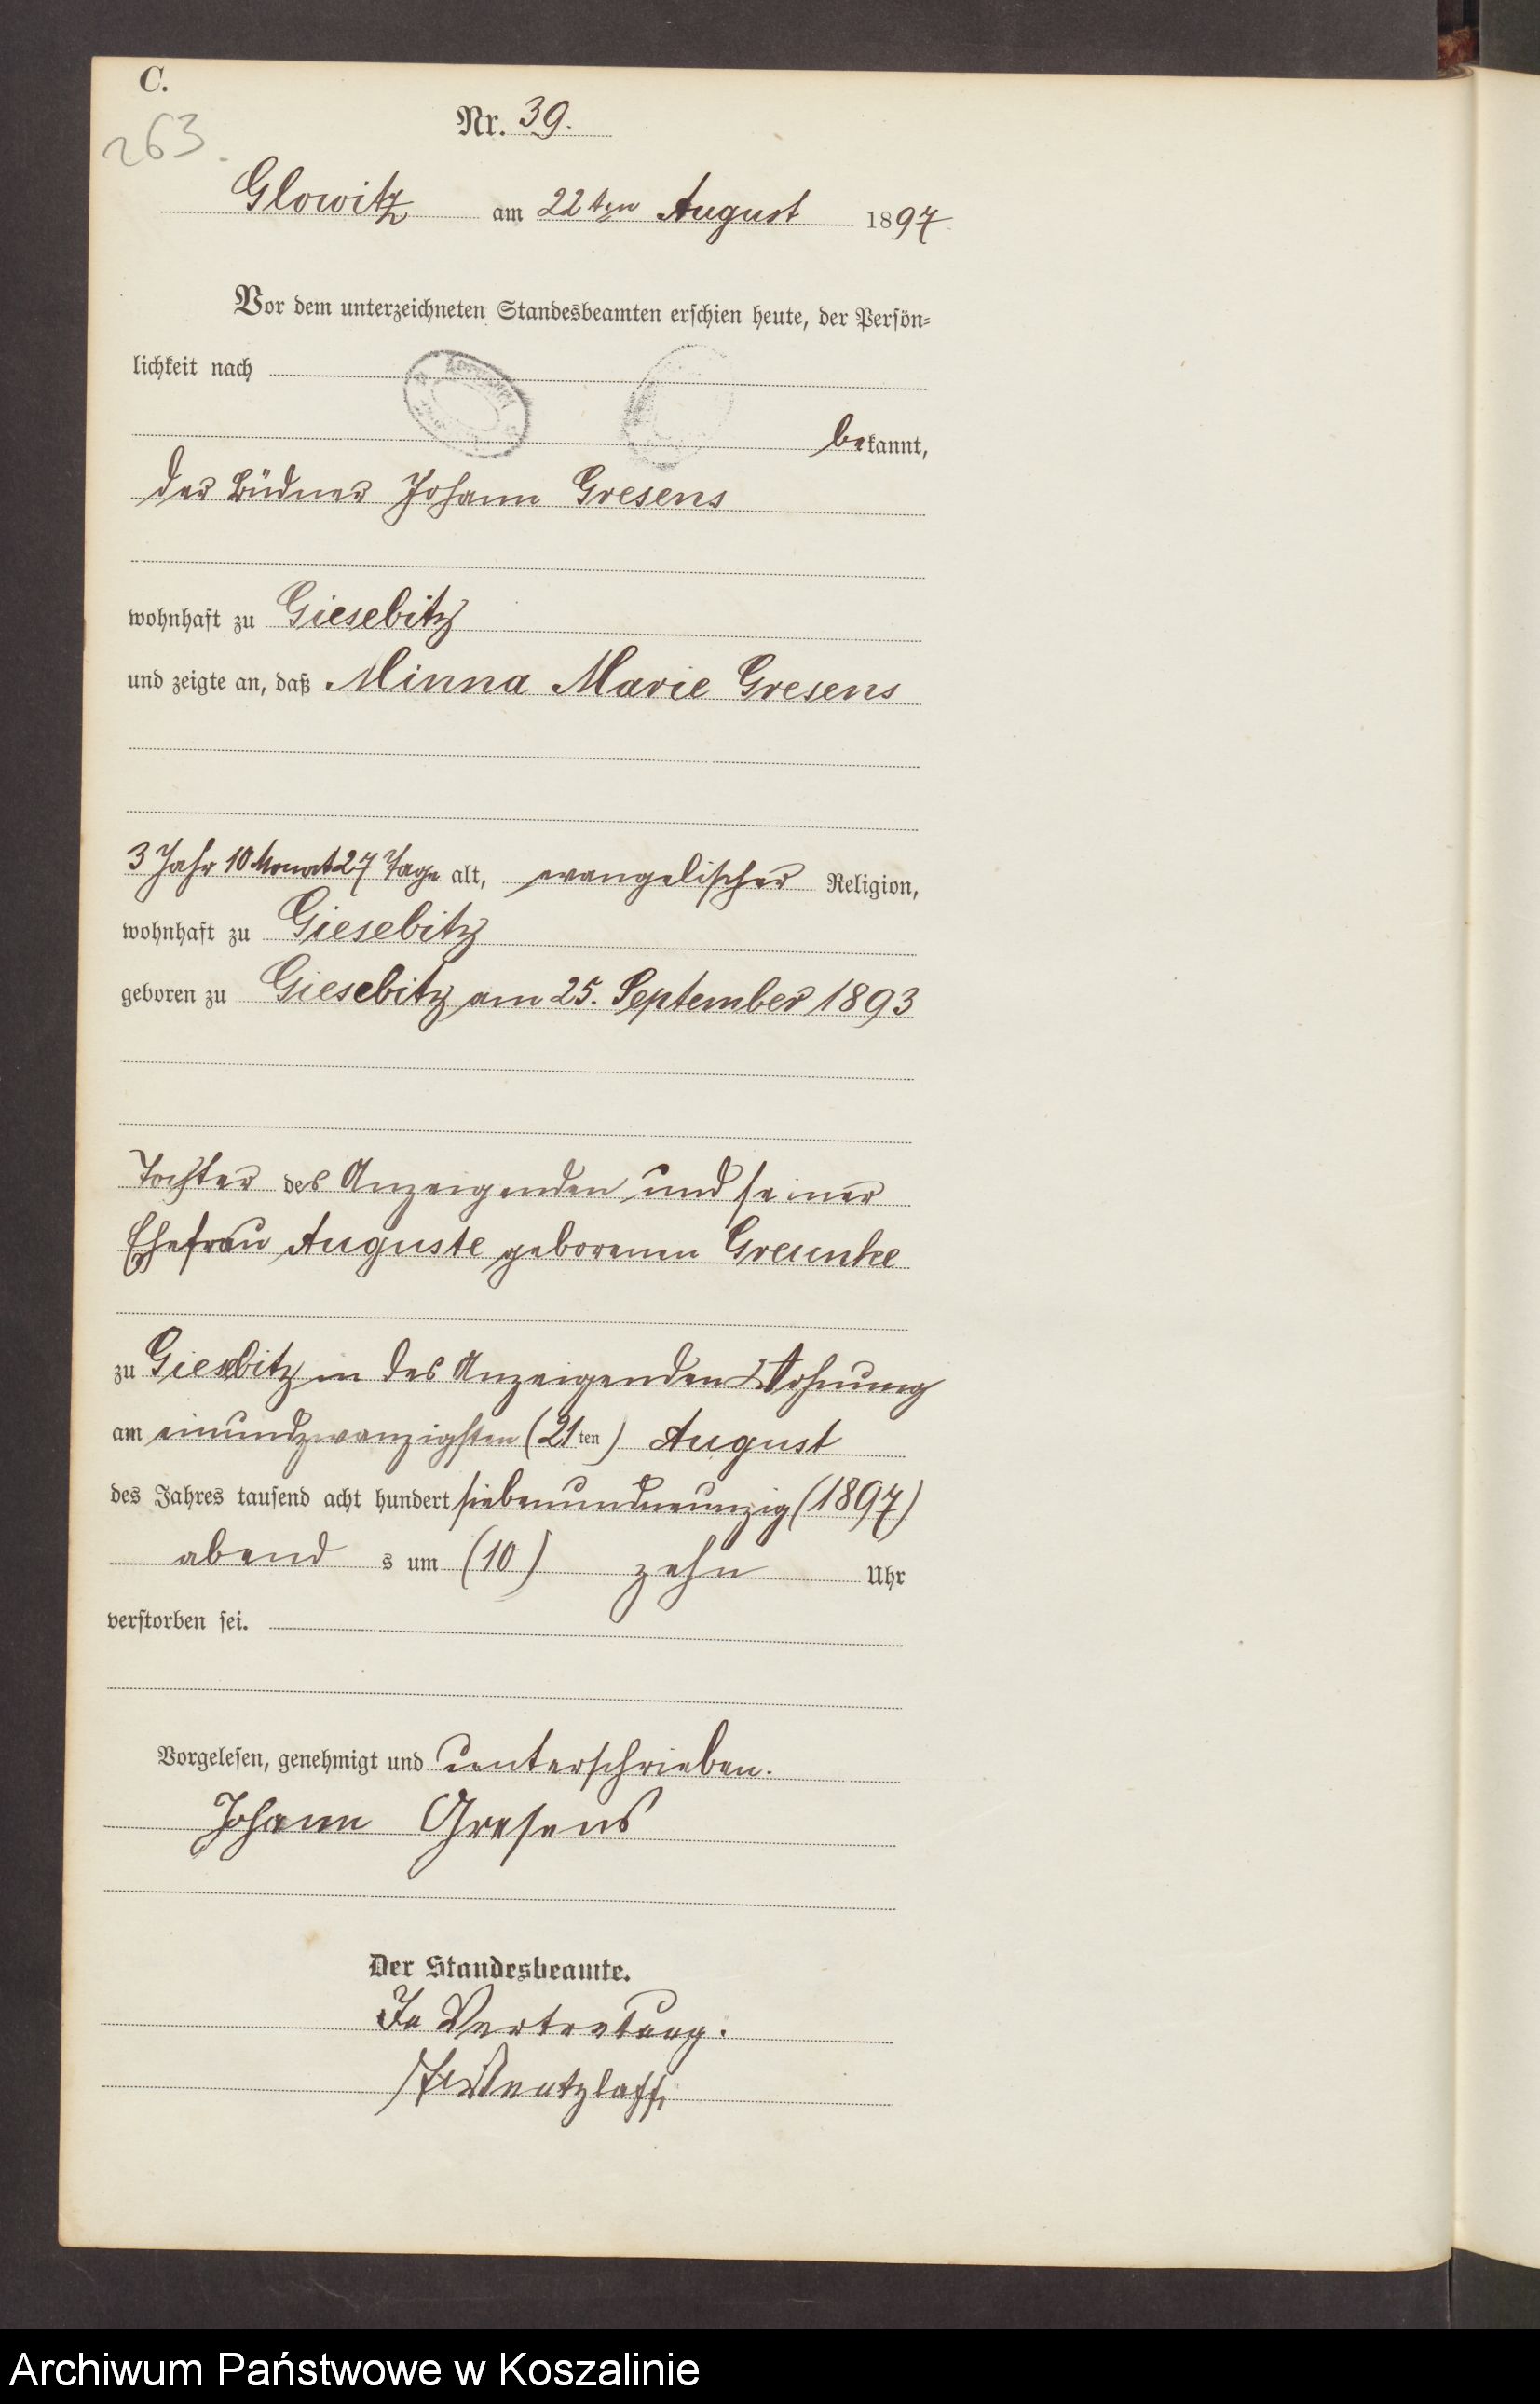 C.
263.
Nr. 39.
Glowitz am 22ten August 1897
Vor dem unterzeichneten Standesbeamten erschien heute, der Persön=
lichkeit nach
bekannt,
der Büdner Johann Gresens
wohnhaft zu Giesebitz
und zeigte an, daß Minna Marie Gresens
3 Jahr 10 Monat 27 Tage alt, evangelischer Religion,
wohnhaft zu Giesebitz
geboren zu Giesebitz am 25. September 1893
Tochter des Anzeigenden und seiner
Ehefrau Auguste geborenen Greunke
zu Giesebitz in des Anzeigenden Wohnung
am einundzwanzigsten (21ten) August
des Jahres tausend acht hundert siebenundneunzig (1897)
abend s um (10) zehn Uhr
verstorben sei.
Vorgelesen, genehmigt und unterschrieben.
Johann Gresens
Der Standesbeamte.
In Vertretung.
Wentzlaff.
Archiwum Państwowe w Koszalinie